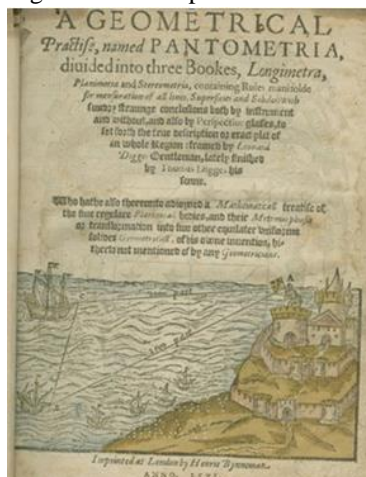 A GEOMETRICAL
Practise, named PANTOMETRIA,
diuided into three Bookes, Longimetra,
Planimetra and Stereometria, containing Rules manifolde
for mensuration of all lines, Superficies and Solides: with
sundry straunge conclusions both by instrument
and without, and also by Perspectiue glasses, to
set forth the true description or exact plat of
an whole Region: framed by Leonard
Digges Gentleman, lately finished
by Thomas Digges his
sonne.
Who hathe also thereunto adioyned a Mathematicall treatise of
the fiue regulare Platonicall bodies, and their Metamorphosis
or transformation into fiue other equilater vniforme
solides Geometricall, of his owne inuention, hi-
therto not mentioned of by any Geometricians.
C
pace
pace
Imprinted at London by Henrie Bynneman.
ANNO.